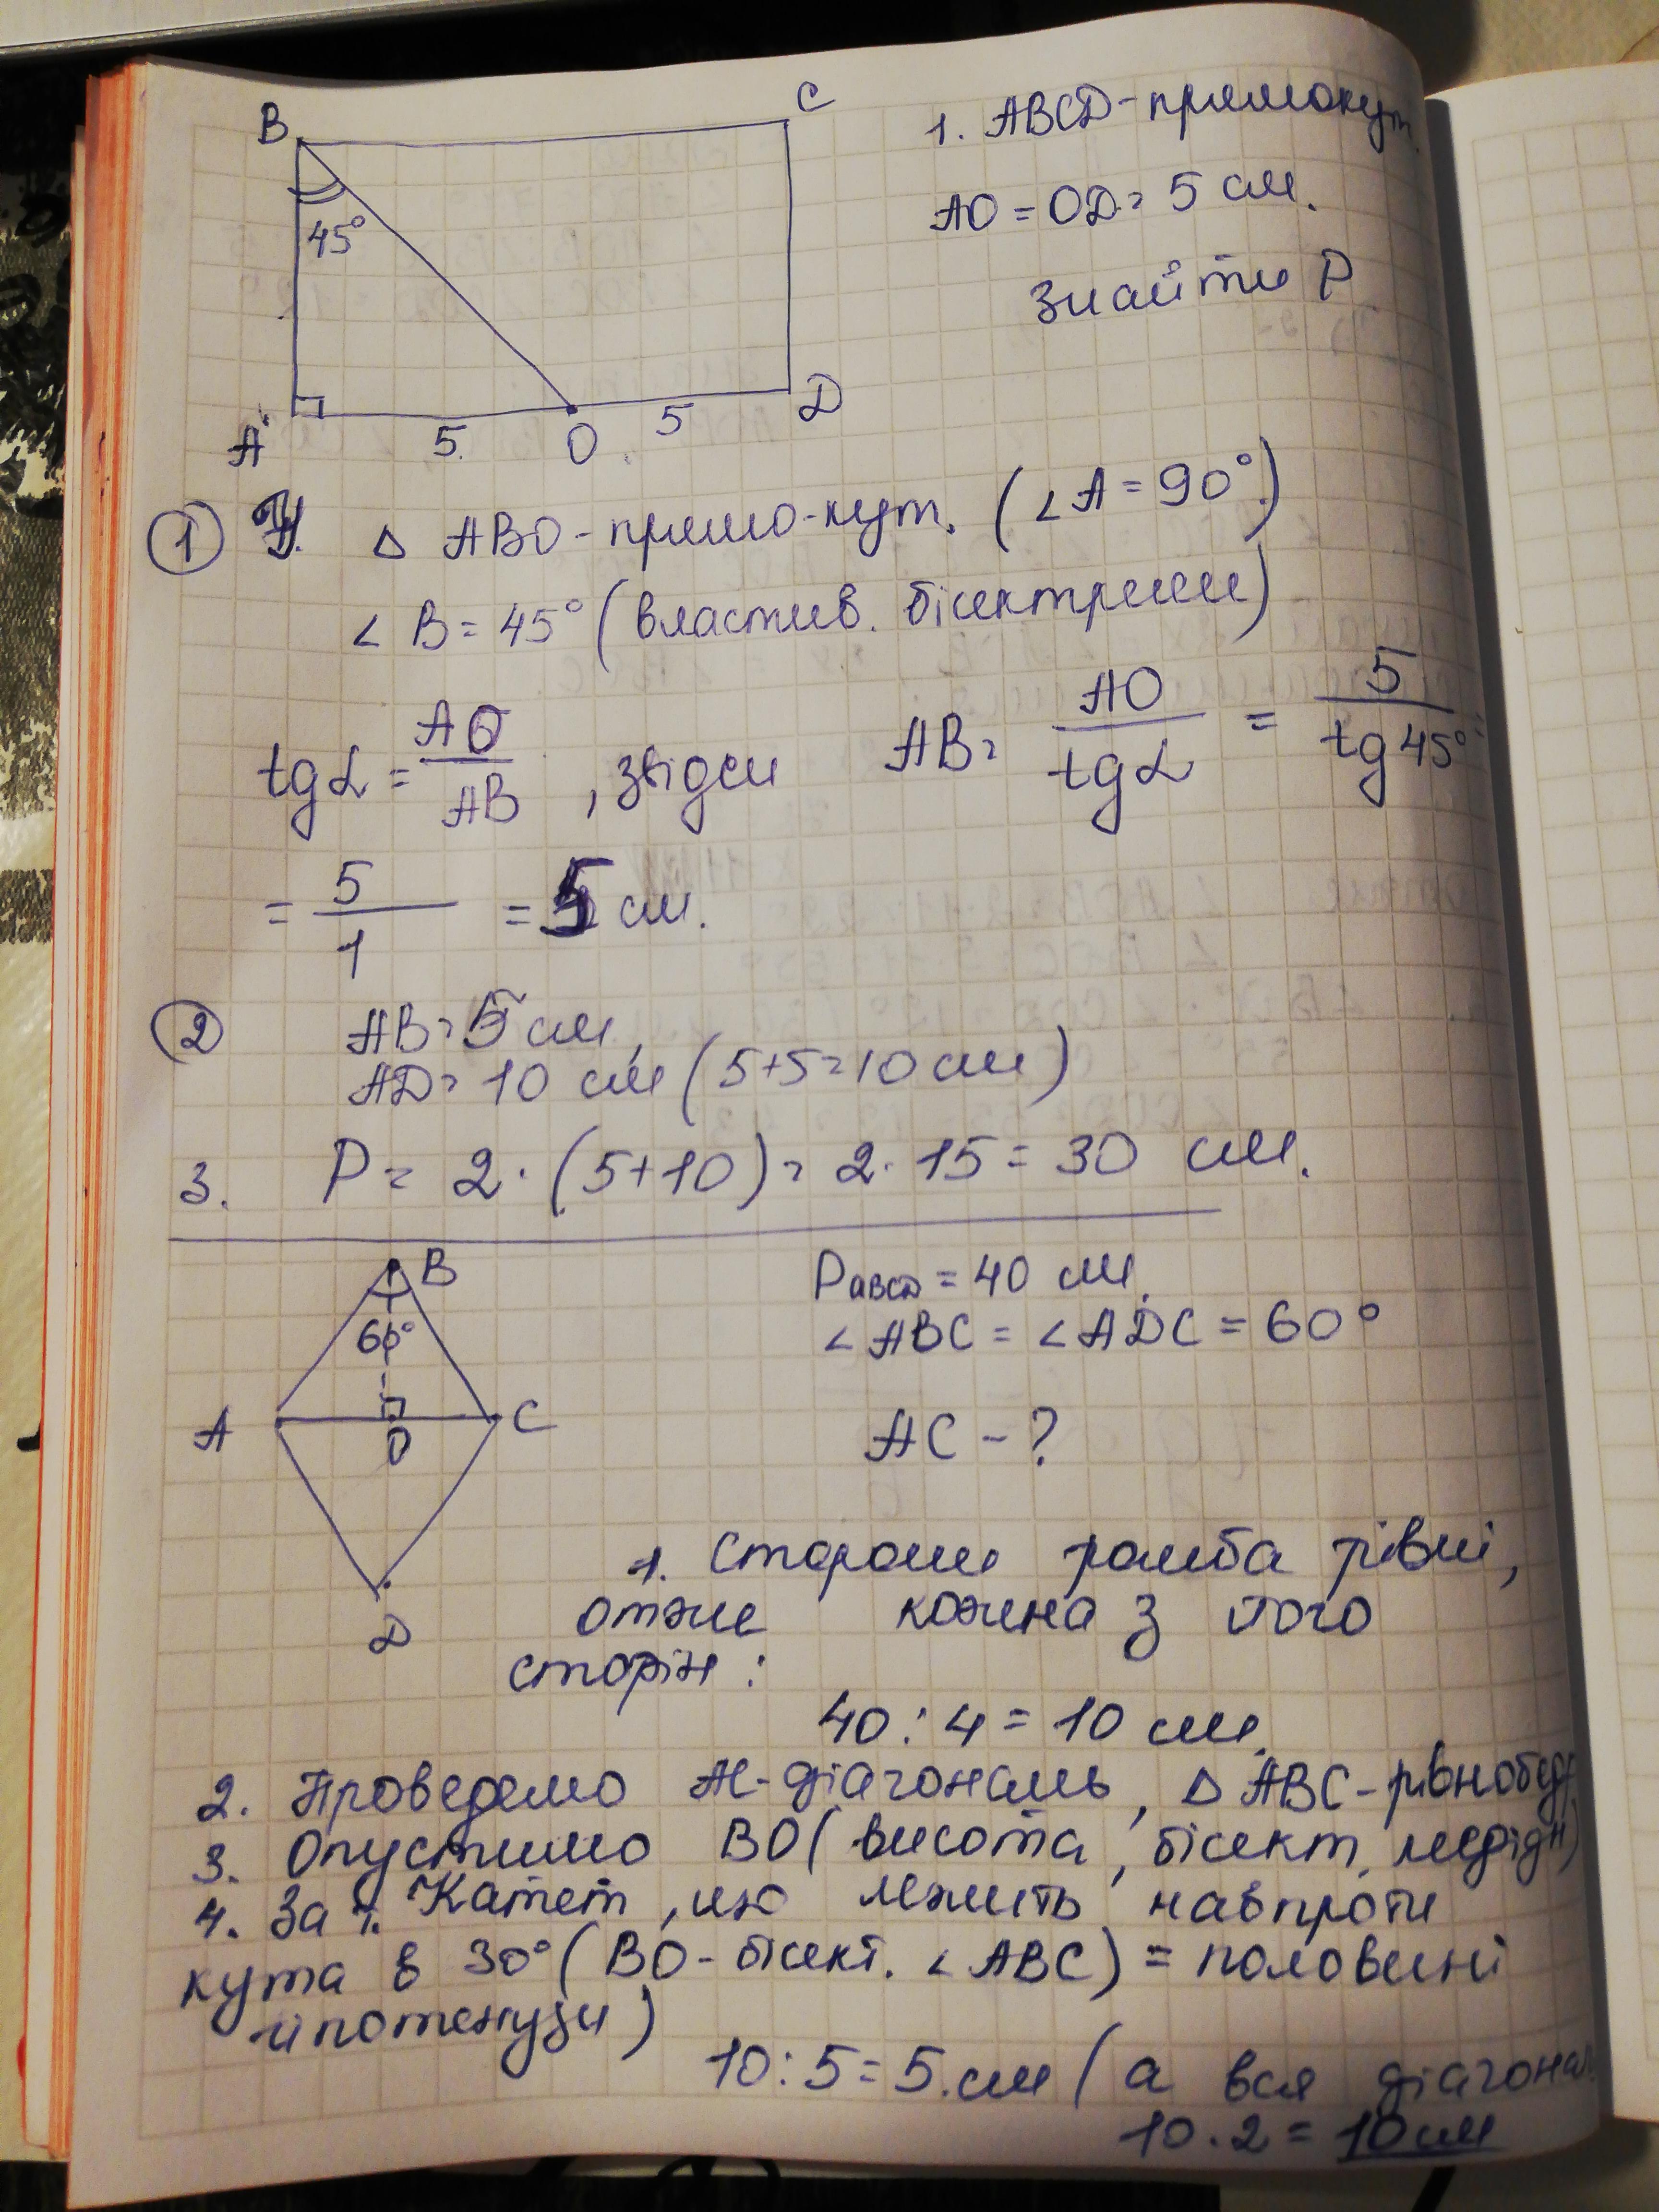 B
C
1. ABCD-прямокут.
45°
AO = OD = 5 см.
Знайти P
A
5.
O
5
D
1 △ ABO - прямо-кут. (∠A = 90°)
∠ B = 45° (властив. бісектриси)
tg α = AO/AB , звідси AB = AO/tg α = 5/tg 45°
= 5/1 = 5 см.
2 AB = 5 см,
AD = 10 см (5+5=10 см)
3. P = 2·(5+10) = 2·15 = 30 см.
B
60°
A
O
C
D
PABCD = 40 см.
∠ABC = ∠ADC = 60°
AC - ?
1. Сторони ромба рівні,
отже кожна з його
сторін:
40:4 = 10 см.
2. Проведемо AC-діагональ, △ ABC-рівнобедр
3. Опустимо BO (висота, бісект, медіан)
4. За т. Катет, що лежить навпроти
кута в 30° (BO-бісект. ∠ABC) = половині
гіпотенузи)
10:5=5.см (а вся діагонал
10.2 = 10 см